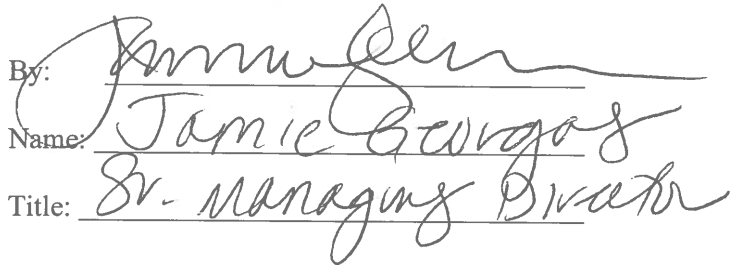 By:
Name: Jamie Georgas
Title: Sr. Managing Director